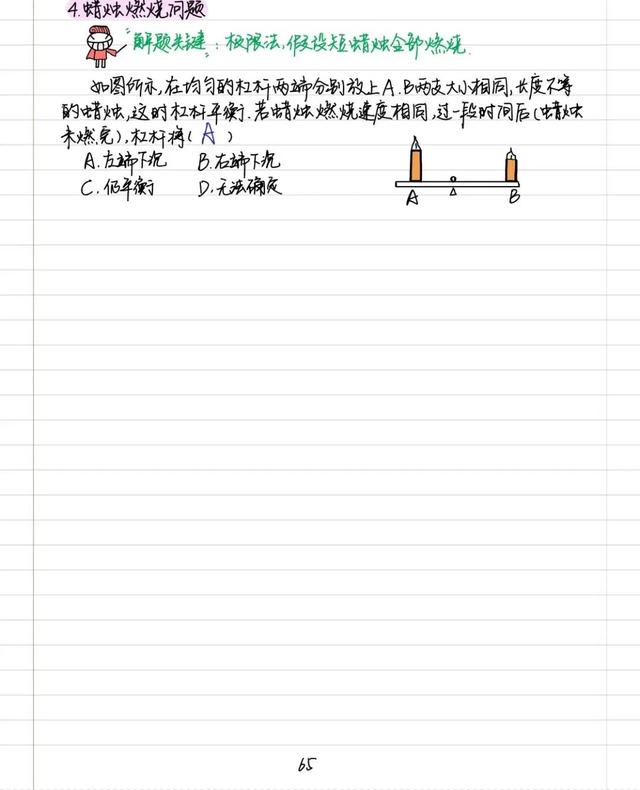 4.蜡烛燃烧问题
"解题关键":极限法,假设短蜡烛全部燃烧.
如图所示,在均匀的杠杆两端分别放上A.B两支大小相同,长度不等
的蜡烛,这时杠杆平衡.若蜡烛燃烧速度相同,过一段时间后(蜡烛
未燃完),杠杆将( A )
A.左端下沉 B.右端下沉
C.仍平衡 D.无法确定
A B
65